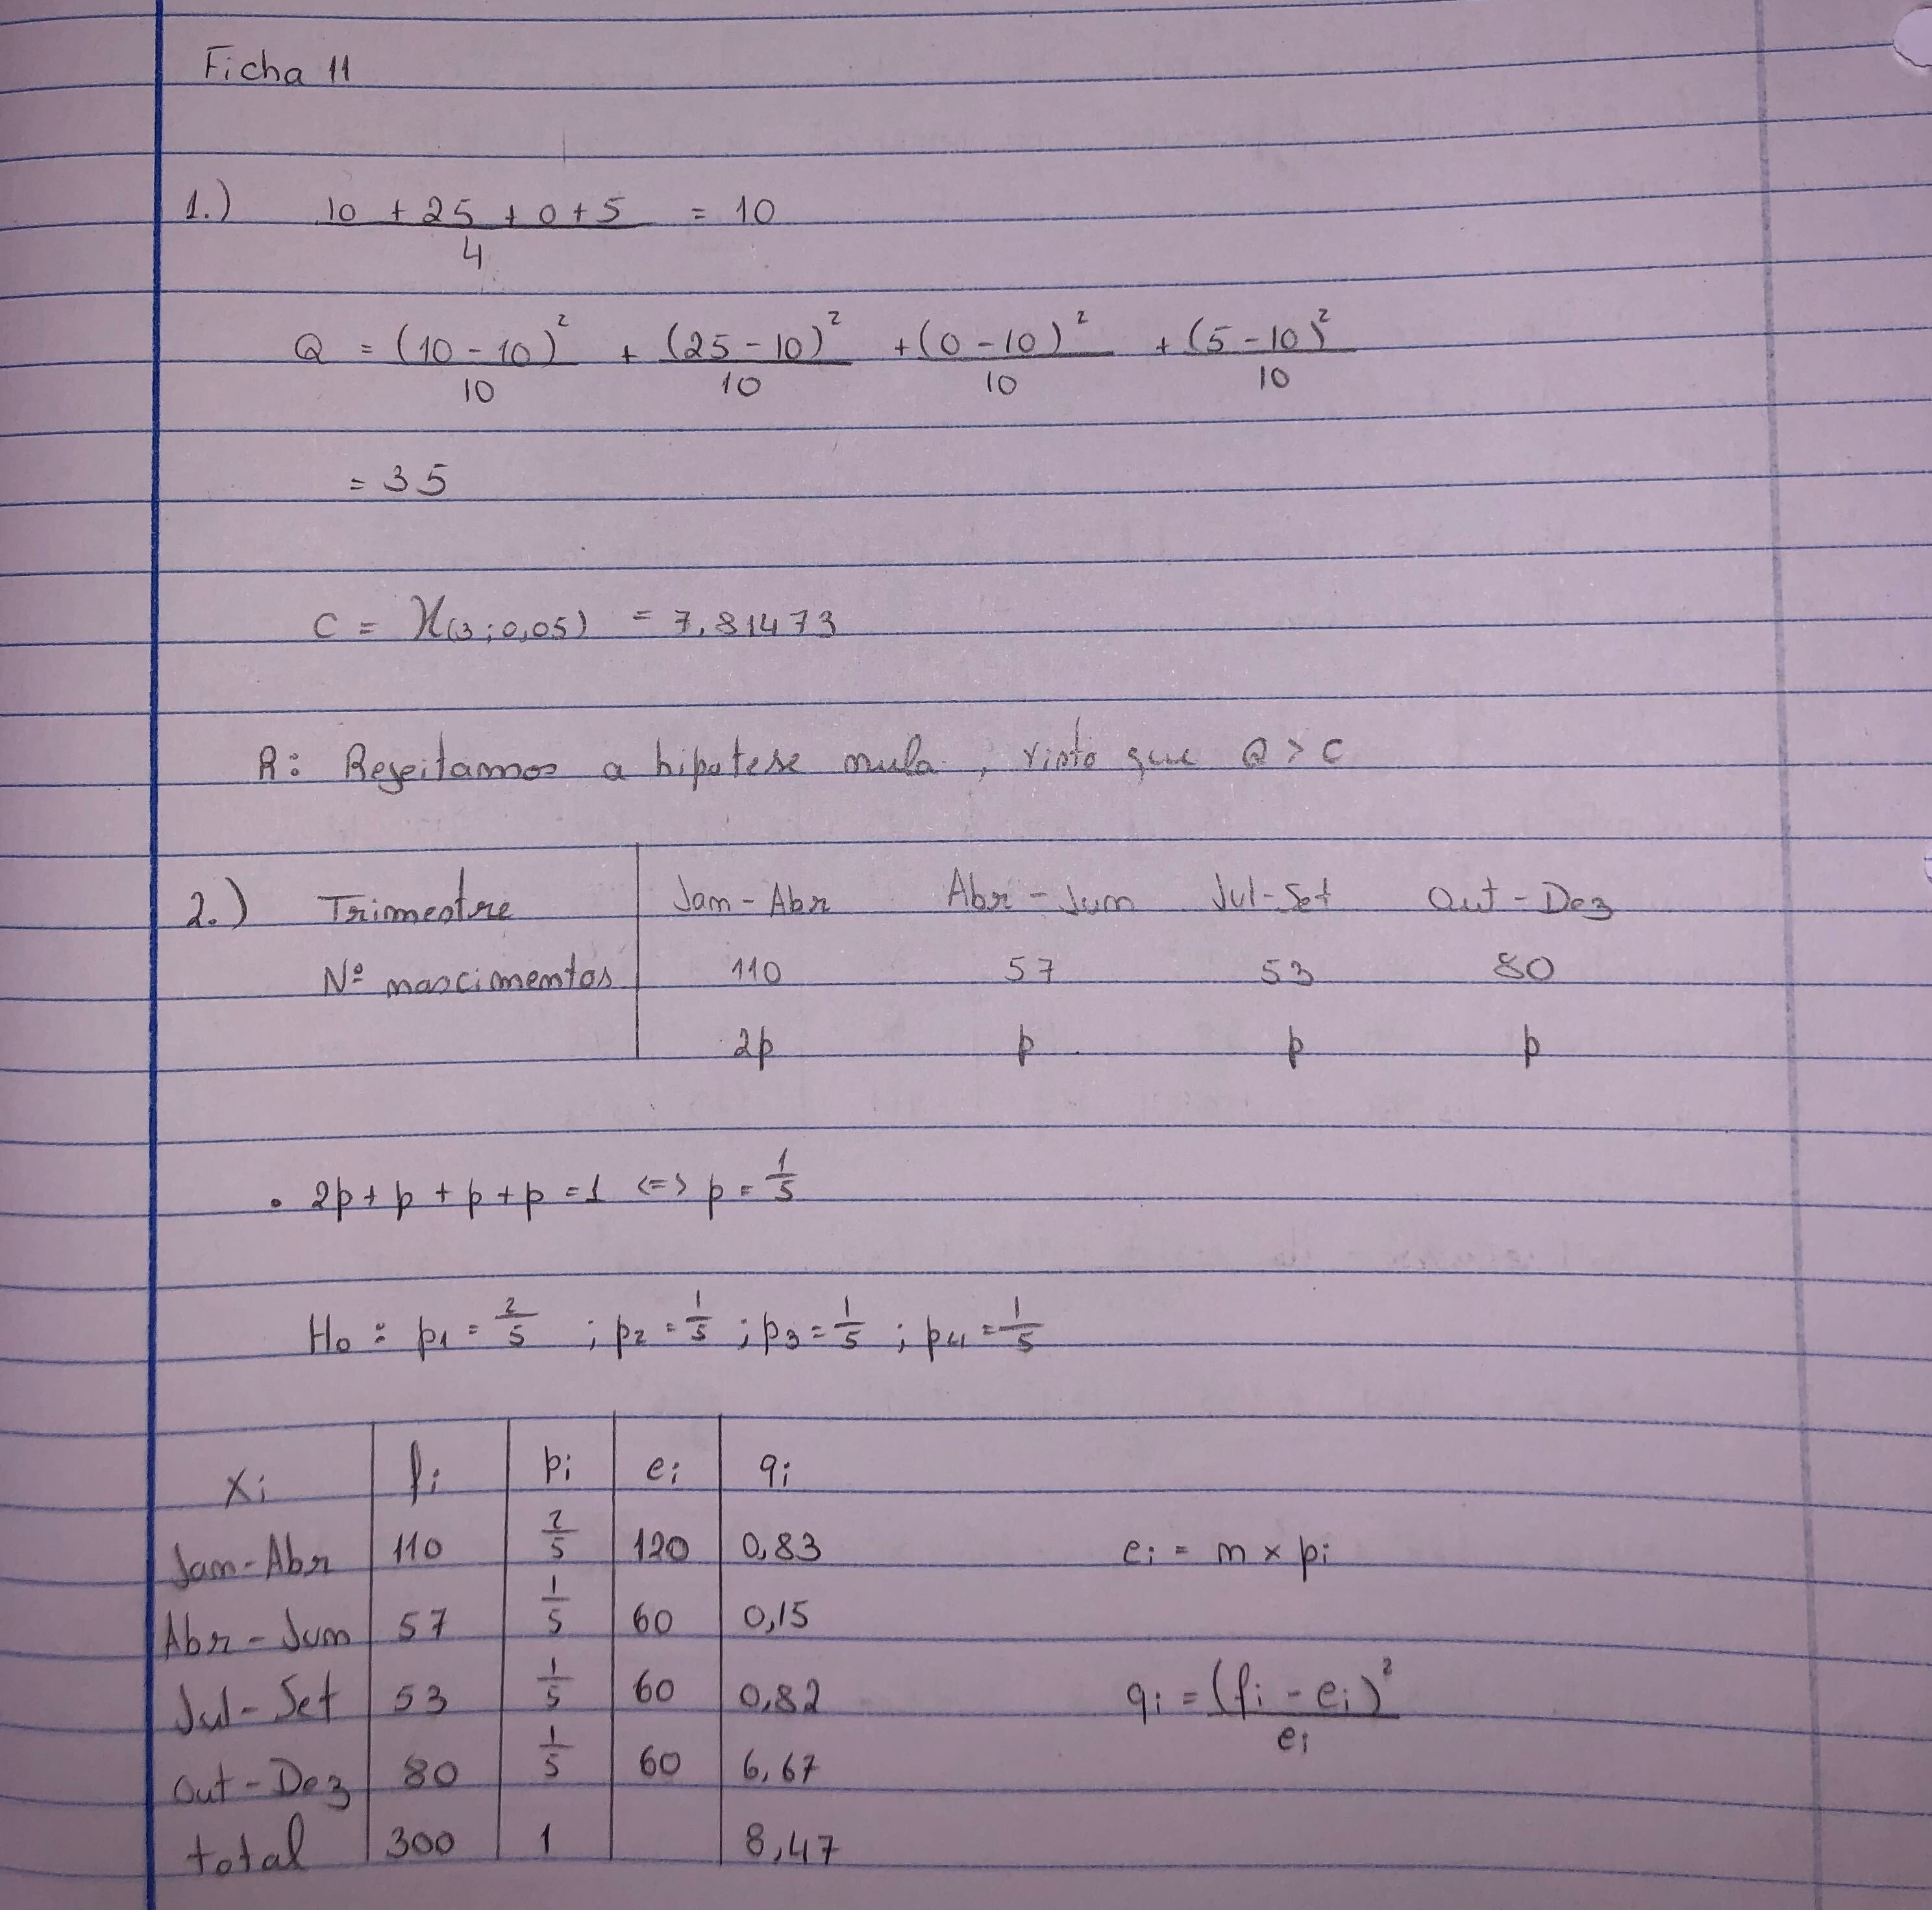 Ficha 11
1.) (10 + 25 + 0 + 5)/4 = 10
Q = (10 - 10)²/10 + (25 - 10)²/10 + (0 - 10)²/10 + (5 - 10)²/10
= 35
C = χ(3;0,05) = 7,81473
R: Rejeitamos a hipotese nula, visto que Q > C
2.) Trimestre Jan-Abr Abr-Jun Jul-Set Out-Dez
Nº nascimentos 110 57 53 80
2p p p p
• 2p + p + p + p = 1 <=> p = 1/5
H0: p1 = 2/5 ; p2 = 1/5 ; p3 = 1/5 ; p4 = 1/5
xi fi pi ei qi
Jan-Abr 110 2/5 120 0,83 ei = n × pi
Abr-Jun 57 1/5 60 0,15
Jul-Set 53 1/5 60 0,82 qi = (fi - ei)²/ei
Out-Dez 80 1/5 60 6,67
total 300 1 8,47